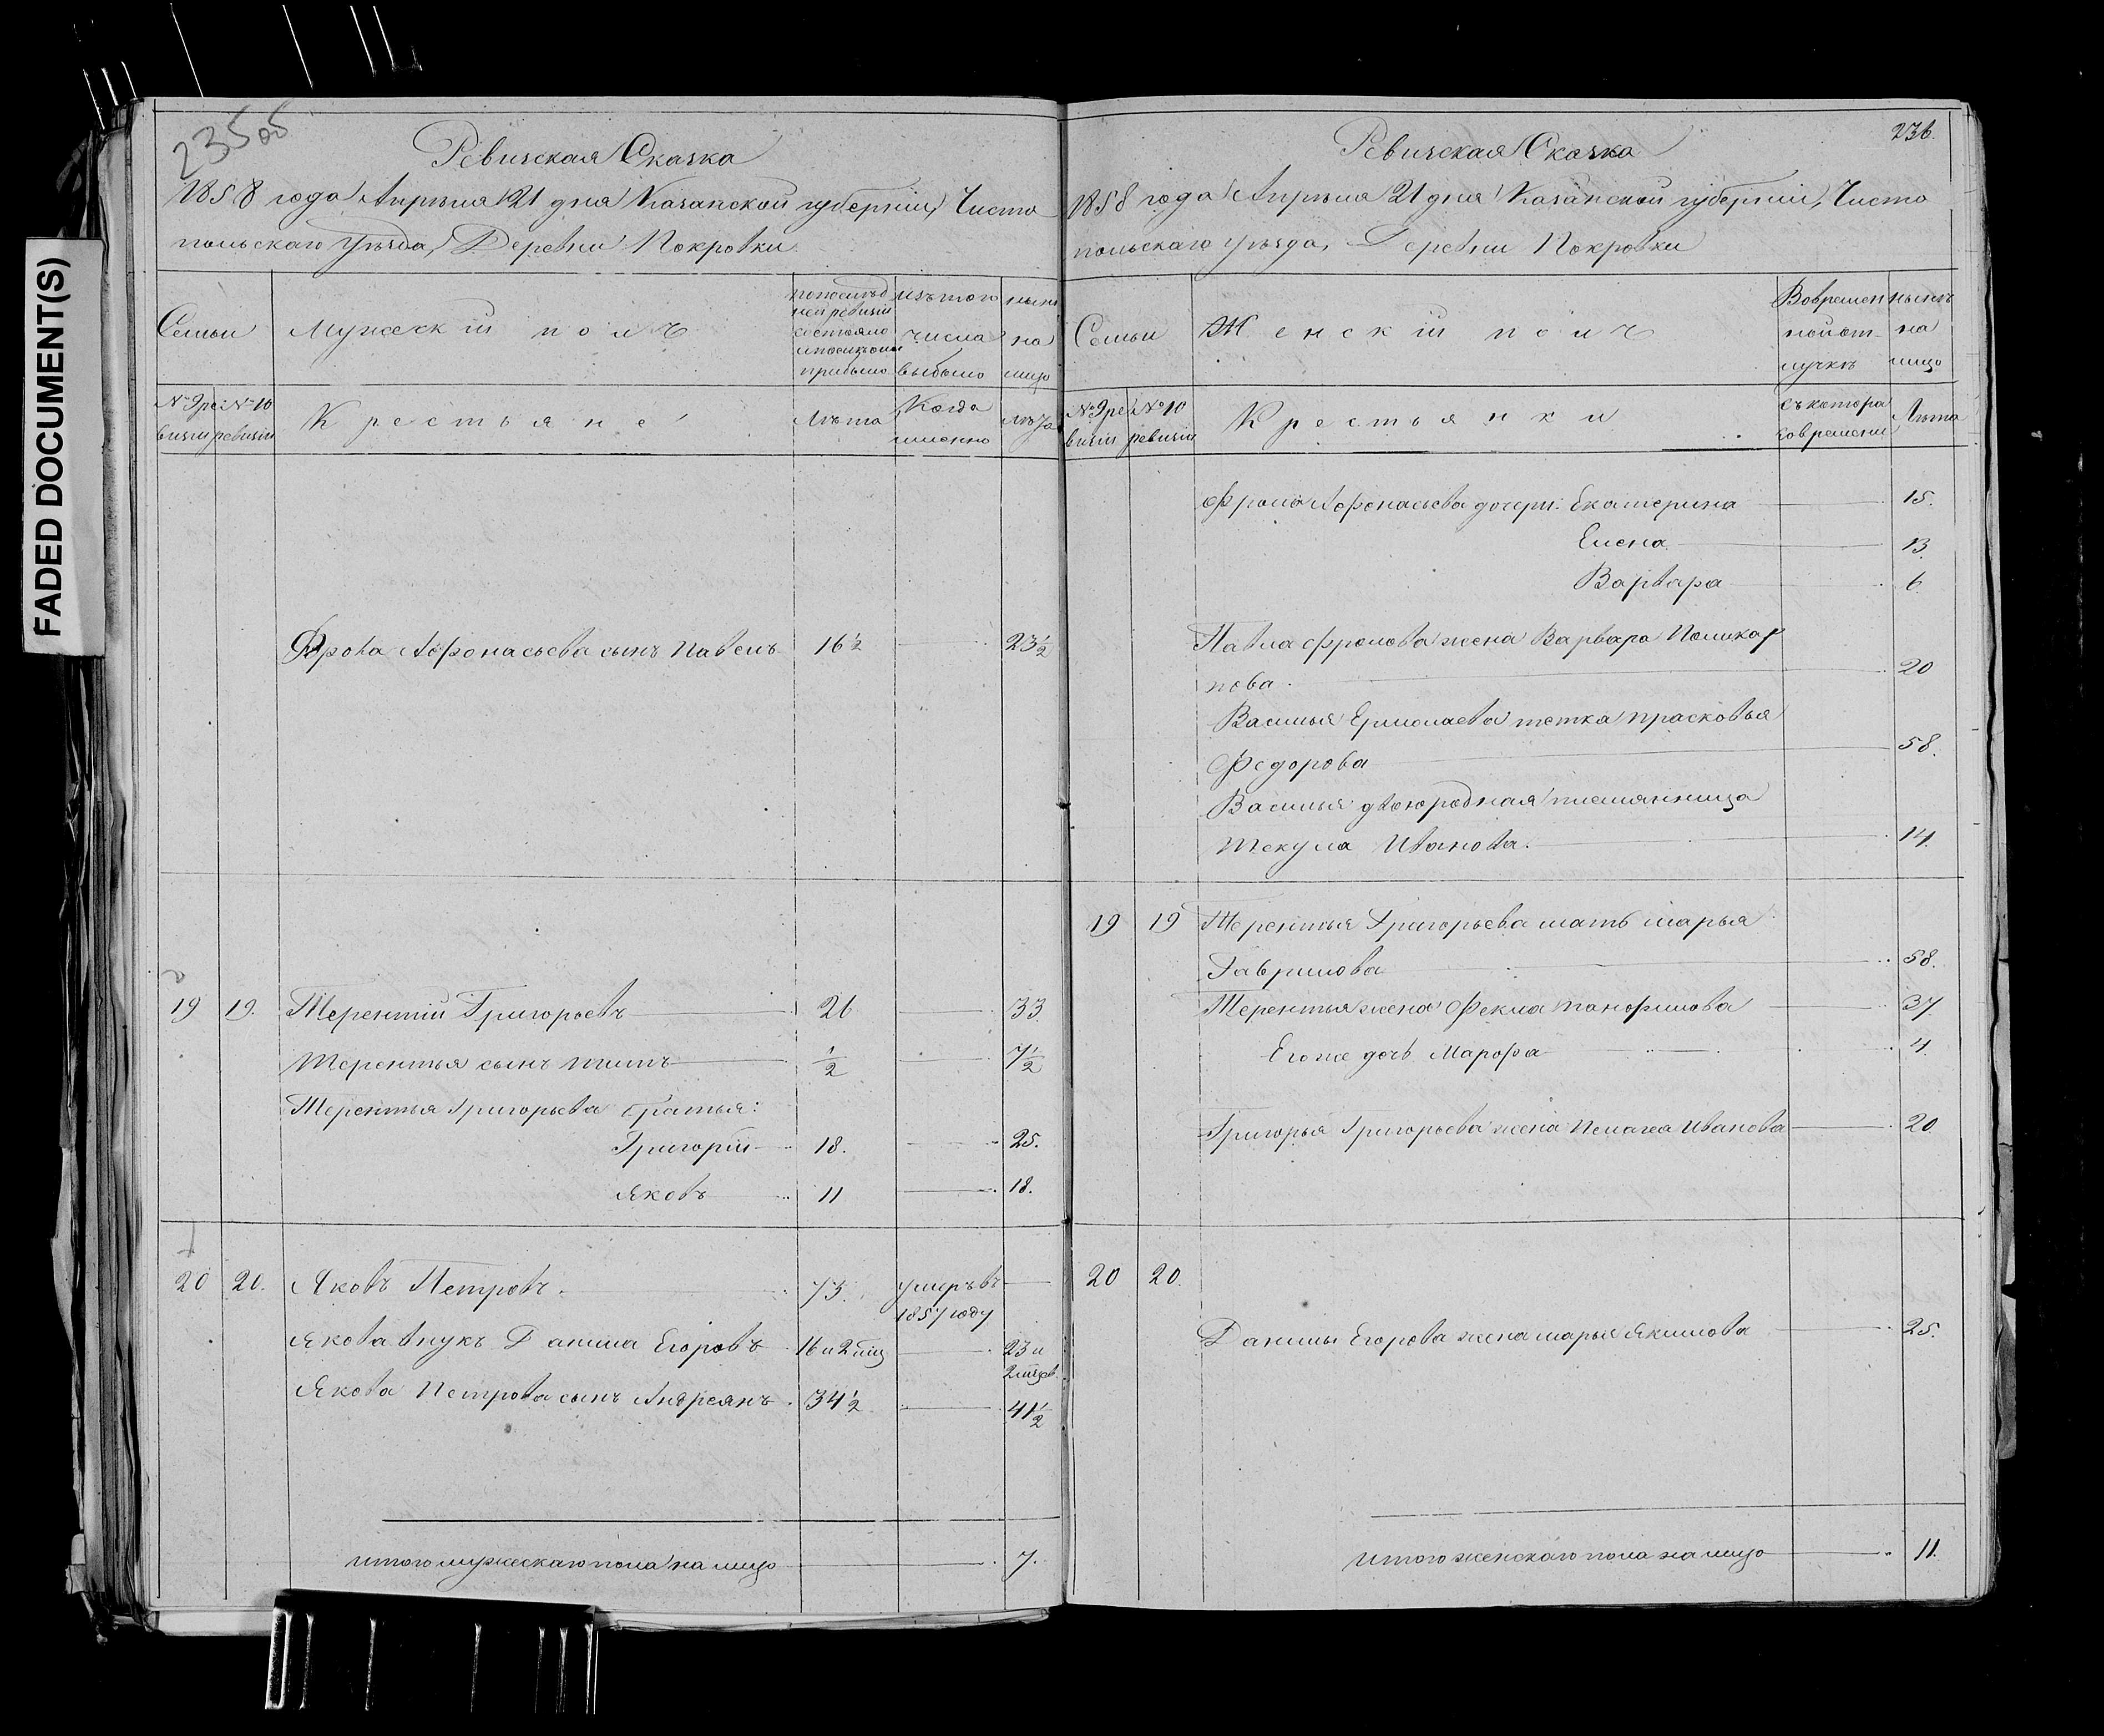 FADED DOCUMENT(S)
235 об
Ревизская Сказка
1858 года Апрѣля 21 дня Казанской губерніи, Чисто
польскаго Уѣзда, Деревни Покровки
Семьи
Мужескій полъ
по послѣд
ней ревизіи
состояло
и послѣ оной
прибыло
изъ того
числа
выбыло
нынѣ
на
лицо
№ 9 ре
визіи
№ 10
ревизіи
Крестьяне
Лѣта
Когда
именно
Лѣта
Фрола Афонасьева сынъ Павелъ 16 ½ 23 ½
19 19. Терентій Григорьевъ 26 33
Терентья сынъ Титъ ½ 7 ½
Терентья Григорьева братья:
Григорій 18. 25.
Яковъ 11 18.
20 20. Яковъ Петровъ. 75. умеръ въ
1857 году
Якова внукъ Данила Егоровъ 16 и 2 мѣц 23 и
2 мѣцов.
Якова Петрова сынъ Андреянъ 34 ½ 41 ½
итого мужескаго пола на лицо 7.
236.
Ревизская Сказка
1858 года Апрѣля 21 дня Казанской губерніи, Чисто
польскаго уѣзда, Деревни Покровки
Семьи
Женскій полъ
Во времен
ной от
лучкѣ
нынѣ
на
лицо
№ 9 ре
визіи
№ 10
ревизіи
Крестьянки
съ котора
го времени
Лѣта
Фрола Афонасьева дочери: Екатерина 15.
Елена 13.
Варвара 6
Павла Фролова жена Варвара Поликар
пова. 20
Василья Ермолаева тетка Прасковья
Федорова 58.
Василья двоюродная племянница
Текула Иванова. 14.
19 19 Терентья Григорьева мать Марья
Гаврилова 58.
Терентья жена Фекла Панфилова 37
Его же дочь Марфа 4.
Григорья Григорьева жена Пелагея Иванова 20
20 20.
Данилы Егорова жена Марья Якимова 25.
итого женскаго пола на лицо 11.